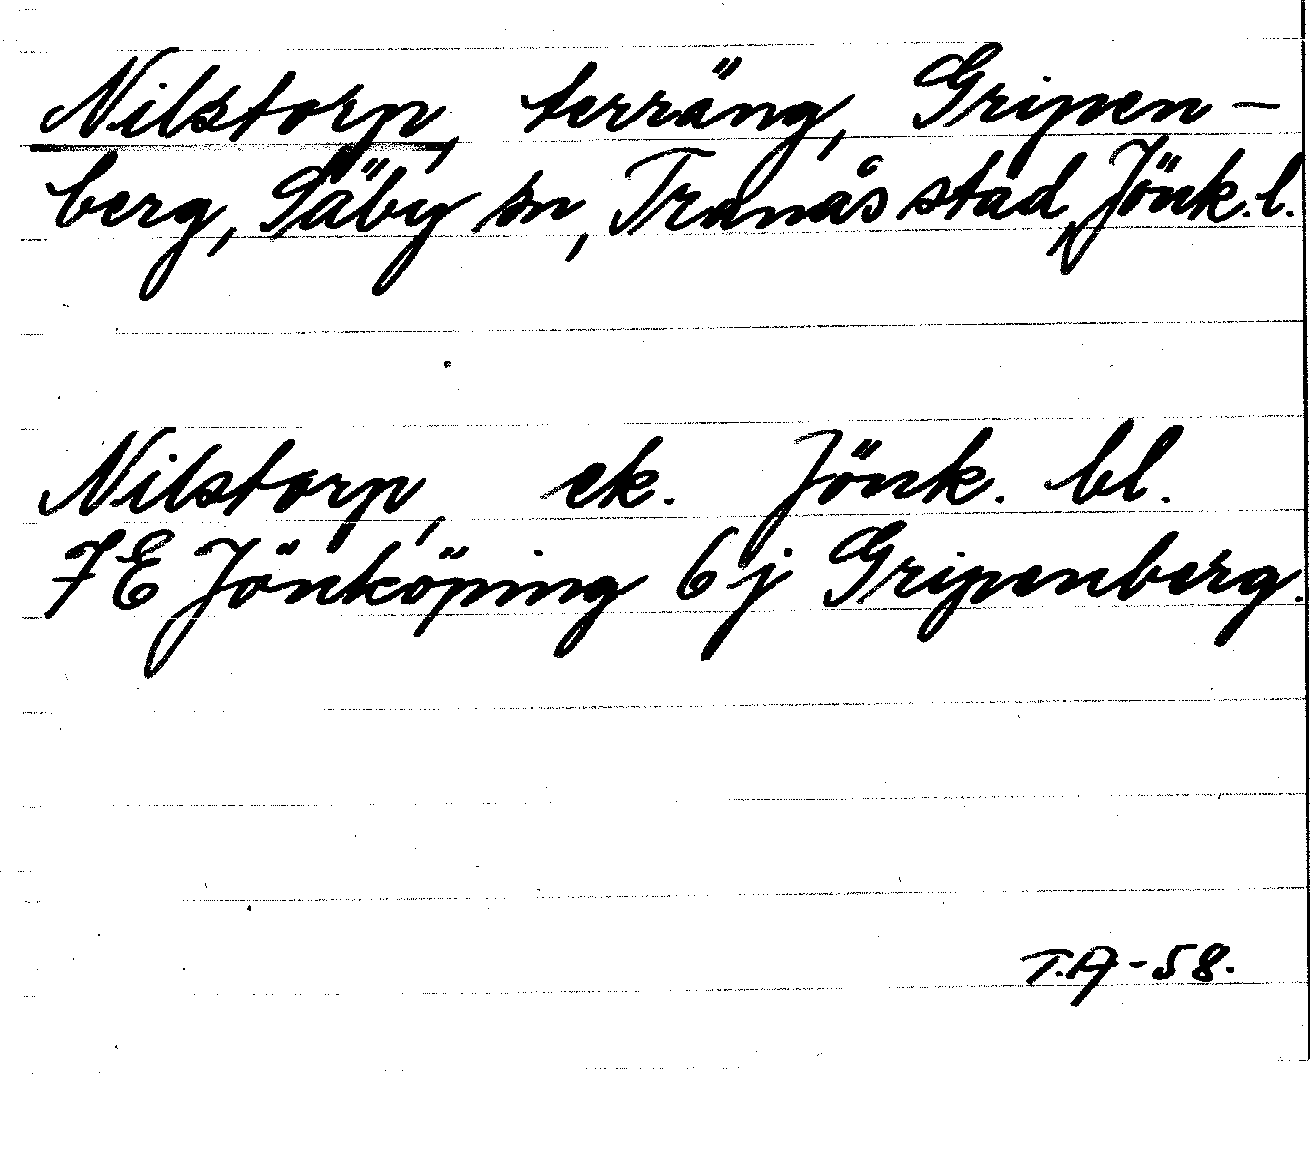 Nilstorp, terräng, Gripen-
berg, Säby sn, Tranås stad, Jönk. l.
Nilstorp, ek. Jönk. bl.
7E Jönköping 6j Gripenberg.
T.A-58.